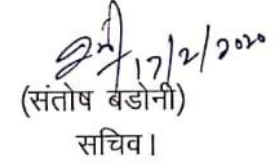 17/2/2020
(संतोष बडोनी)
सचिव।